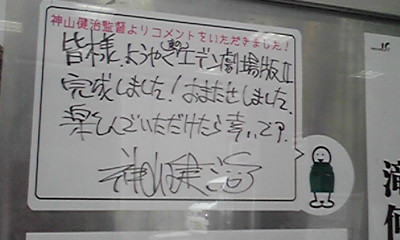 神山健治監督よりコメントをいただきました！
皆様、ようやく東のエデン劇場版Ⅱ
完成しました！おまたせしました。
楽しんでいただけたら幸いです。
神山健治
滝
何